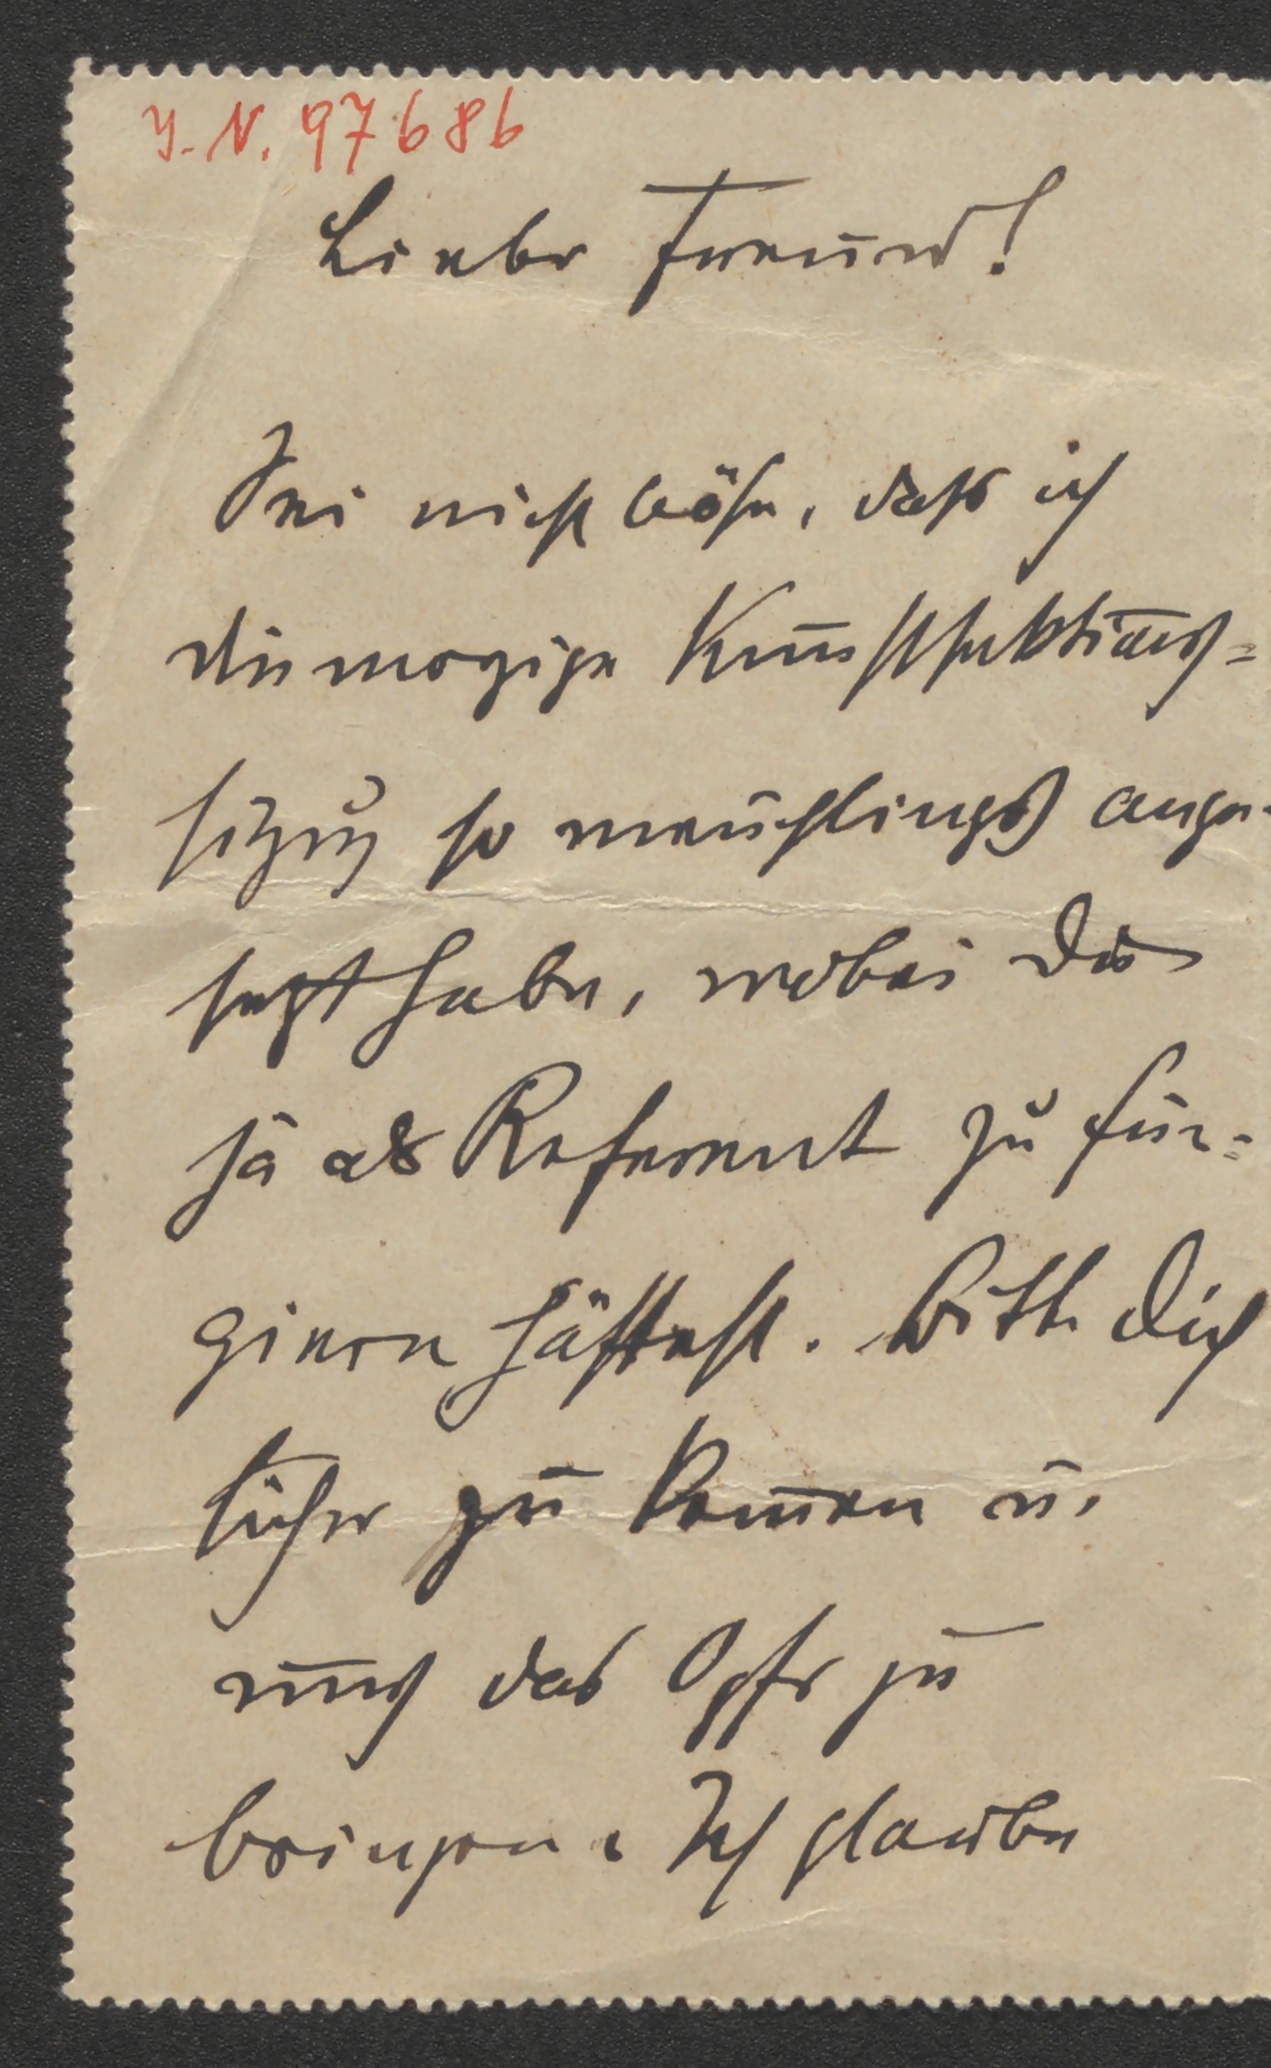 J. N. 97686
Lieber Freund!
Sei nicht böse, dass ich
die morgige Kunstsektions=
sitzung so meuchlings ange-
setzt habe, wobei Du
ja als Referent zu fun=
gieren hättest. Bitte Dich
sicher zu kommen u.
uns das Opfer zu
bringen. Ich glaube